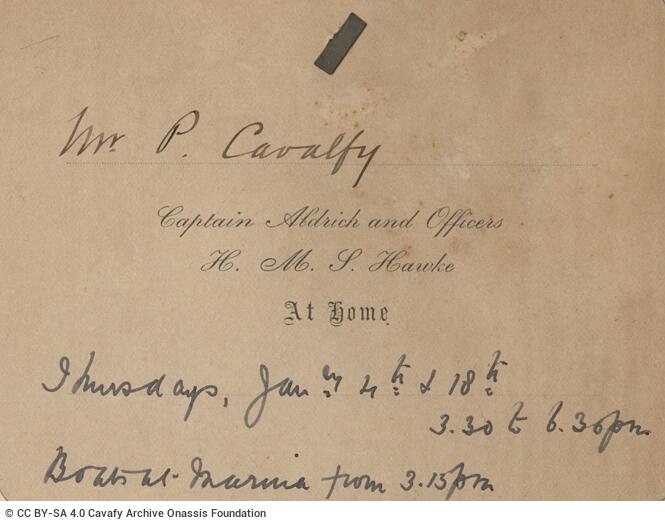 Mr P. Cavalfy
Captain Aldrich and Officers
H. M. S. Hawke
At Home
Thursdays, Jan^ry 4th & 18th
3.30 to 6.30pm.
Boats at Marina from 3.15pm
© CC BY-SA 4.0 Cavafy Archive Onassis Foundation